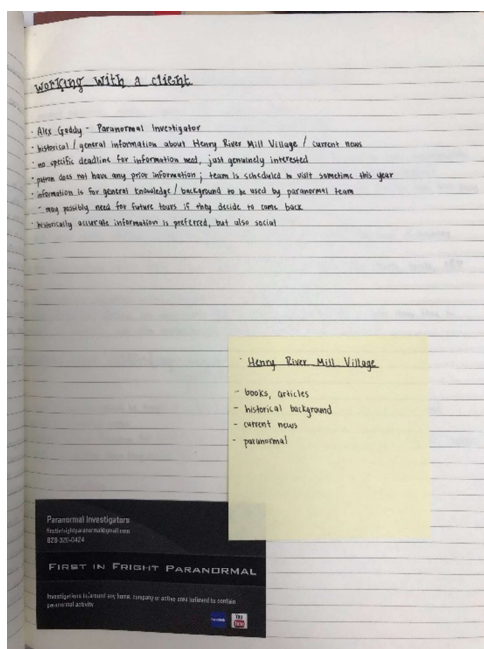 working with a client
- Alex Gaddy - Paranormal Investigator
- historical / general information about Henry River Mill Village / current news
- no specific deadline for information need, just genuinely interested
- patron does not have any prior information ; team is scheduled to visit sometime this year
- information is for general knowledge / background to be used by paranormal team
- may possibly need for future tours if they decide to come back
- historically accurate information is preferred, but also social
- Henry River Mill Village
- books, articles
- historical background
- current news
- paranormal
Paranormal Investigators
828-320-0424
FIRST IN FRIGHT PARANORMAL
Investigations of any home, company or active area believed to contain
paranormal activity